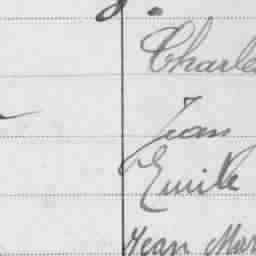 Charle
Jean
Emile
Jean Mar